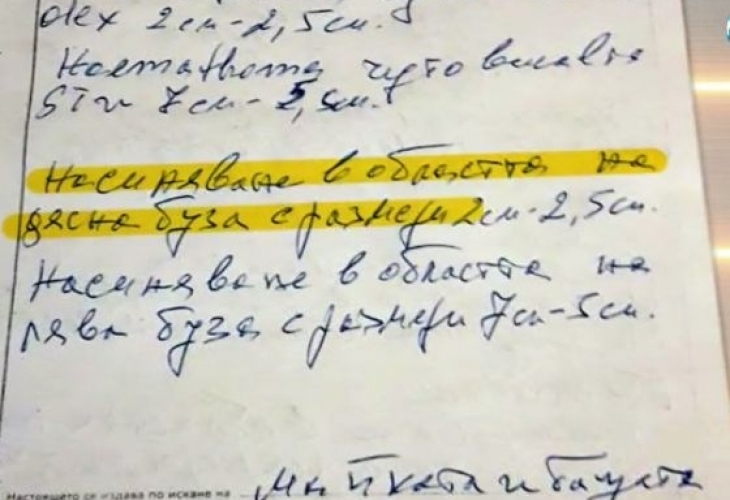 dex 2см-2,5см.
Haemathoma regio buccalis
sin 7см-5см.
Насиняване в областта на
дясна буза с размери 2см-2,5см.
Насиняване в областта на
лява буза с размери 7см-5см.
Настоящето се издава по искане на Майката и бащата